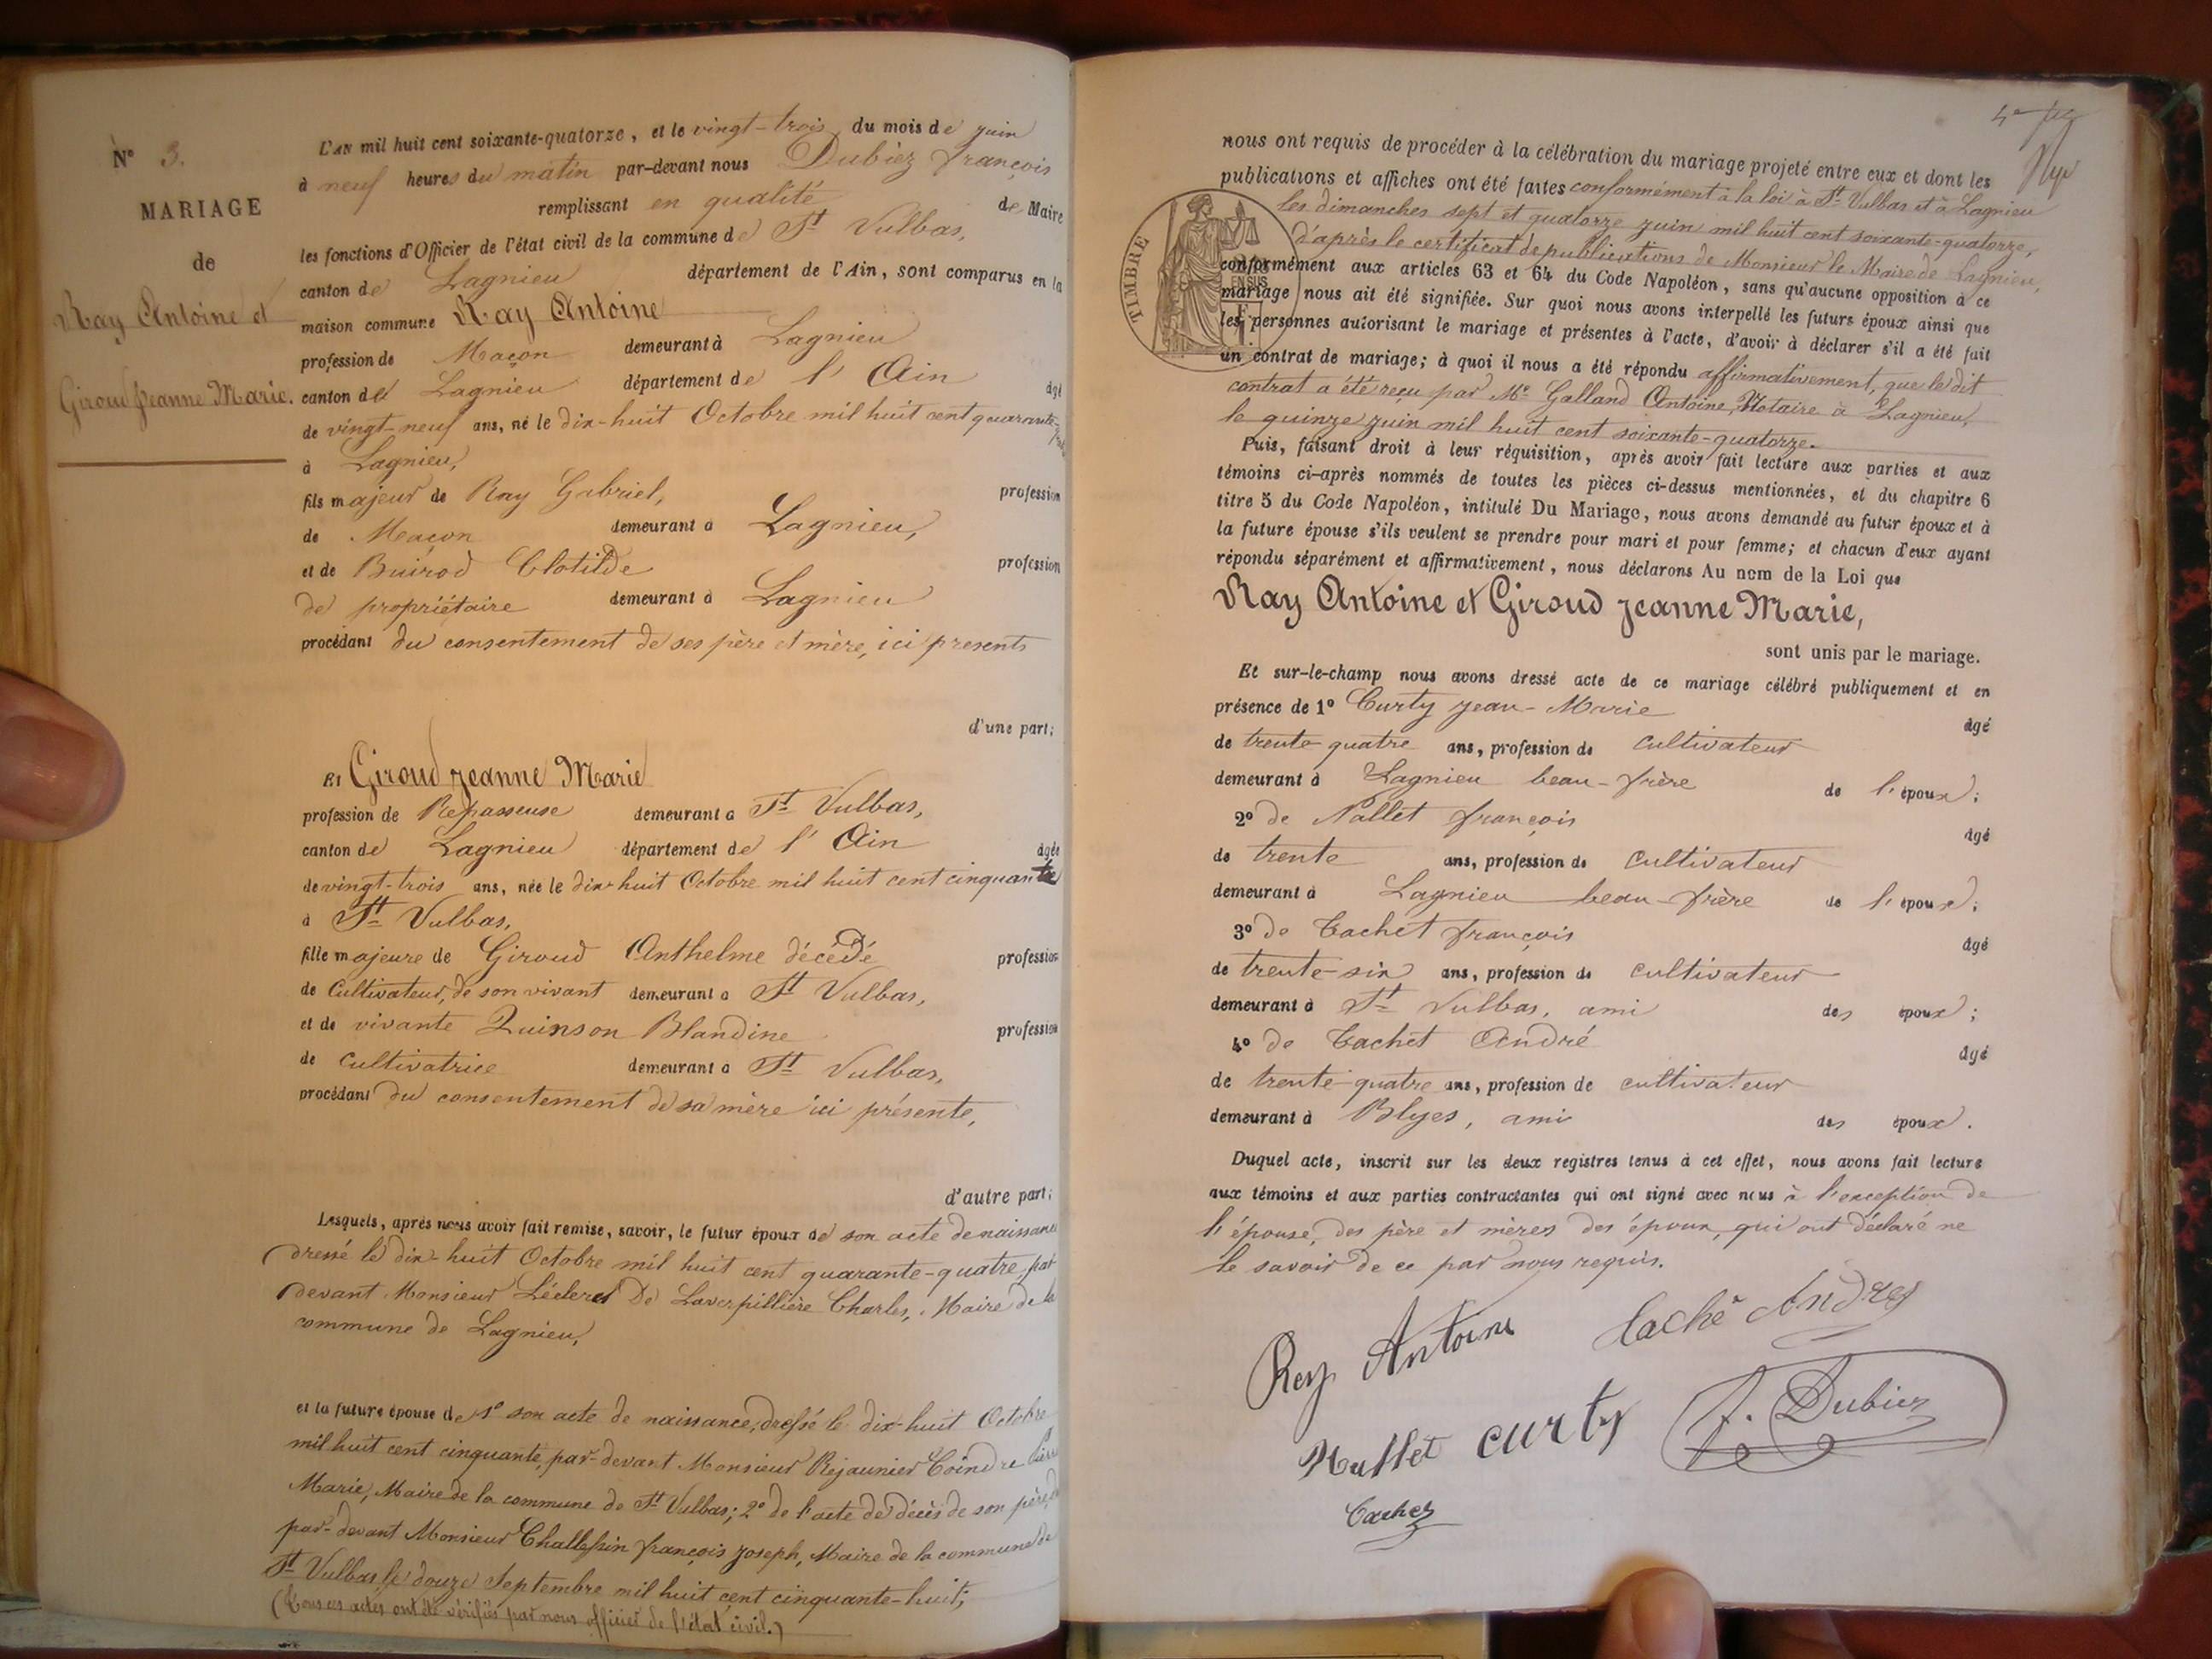 N° 3.
MARIAGE
de
Ray Antoine et
Giroud Jeanne Marie.
L'AN mil huit cent soixante-quatorze, et le vingt-trois du mois de juin
à neuf heures du matin par-devant nous Dubiez françois
remplissant en qualité de Maire
les fonctions d'Officier de l'état civil de la commune de St Vulbas,
canton de Lagnieu département de l'Ain, sont comparus en la
maison commune Ray Antoine
profession de Maçon demeurant à Lagnieu
canton de Lagnieu département de l'Ain âgé
de vingt-neuf ans, né le dix-huit Octobre mil huit cent quarante-
à Lagnieu,
fils majeur de Ray Gabriel, profession
de Maçon demeurant à Lagnieu,
et de Buirod Clotilde profession
de propriétaire demeurant à Lagnieu
procédant du consentement de ses père et mère, ici présents
d'une part;
Et Giroud Jeanne Marie
profession de Repasseuse demeurant à St Vulbas,
canton de Lagnieu département de l'Ain âgée
de vingt-trois ans, née le dix-huit Octobre mil huit cent cinquante
à St Vulbas,
fille majeure de Giroud Anthelme décédé profession
de Cultivateur, de son vivant demeurant à St Vulbas,
et de vivante Quinson Blandine profession
de cultivatrice demeurant à St Vulbas,
procédant du consentement de sa mère ici présente,
d'autre part;
Lesquels, après nous avoir fait remise, savoir, le futur époux de son acte de naissance
dressé le dix-huit Octobre mil huit cent quarante-quatre, par
devant Monsieur Léclerc De Laverpillière Charles, Maire de la
commune de Lagnieu,
et la future épouse de 1° son acte de naissance, dressé le dix-huit Octobre
mil huit cent cinquante, par-devant Monsieur Réjaunier Coindre Pierre
Marie, Maire de la commune de St Vulbas; 2° de l'acte de décès de son père,
par-devant Monsieur Challessin françois Joseph, Maire de la commune de
St Vulbas le douze Septembre mil huit cent cinquante-huit;
(Tous ces actes ont été vérifiés par nous officier de l'état civil.)
nous ont requis de procéder à la célébration du mariage projeté entre eux et dont les
publications et affiches ont été faites conformément à la loi à St Vulbas et à Lagnieu
les dimanches sept et quatorze juin mil huit cent soixante-quatorze,
d'après le certificat de publications de Monsieur le Maire de Lagnieu,
TIMBRE
conformément aux articles 63 et 64 du Code Napoléon, sans qu'aucune opposition à ce
mariage nous ait été signifiée. Sur quoi nous avons interpellé les futurs époux ainsi que
les personnes autorisant le mariage et présentes à l'acte, d'avoir à déclarer s'il a été fait
un contrat de mariage; à quoi il nous a été répondu affirmativement, que le dit
contrat a été reçu par Me Galland Antoine, Notaire à Lagnieu,
le quinze juin mil huit cent soixante-quatorze.
Puis, faisant droit à leur réquisition, après avoir fait lecture aux parties et aux
témoins ci-après nommés de toutes les pièces ci-dessus mentionnées, et du chapitre 6
titre 5 du Code Napoléon, intitulé Du Mariage, nous avons demandé au futur époux et à
la future épouse s'ils veulent se prendre pour mari et pour femme; et chacun d'eux ayant
répondu séparément et affirmativement, nous déclarons Au nom de la Loi que
Ray Antoine et Giroud Jeanne Marie,
sont unis par le mariage.
Et sur-le-champ nous avons dressé acte de ce mariage célébré publiquement et en
présence de 1° Curty Jean-Marie âgé
de trente quatre ans, profession de cultivateur
demeurant à Lagnieu beau-frère de l'époux;
2° de Nallet françois âgé
de trente ans, profession de cultivateur
demeurant à Lagnieu beau-frère de l'époux;
3° de Tachet françois âgé
de trente-six ans, profession de cultivateur
demeurant à St Vulbas, ami des époux;
4° de Tachet André âgé
de trente-quatre ans, profession de cultivateur
demeurant à Blyes, ami des époux.
Duquel acte, inscrit sur les deux registres tenus à cet effet, nous avons fait lecture
aux témoins et aux parties contractantes qui ont signé avec nous à l'exception de
l'épouse, des père et mères des époux, qui ont déclaré ne
le savoir de ce par nous requis.
Rey Antoine
Taché Andre
Nallet
curty
F. Dubiez
Tachez